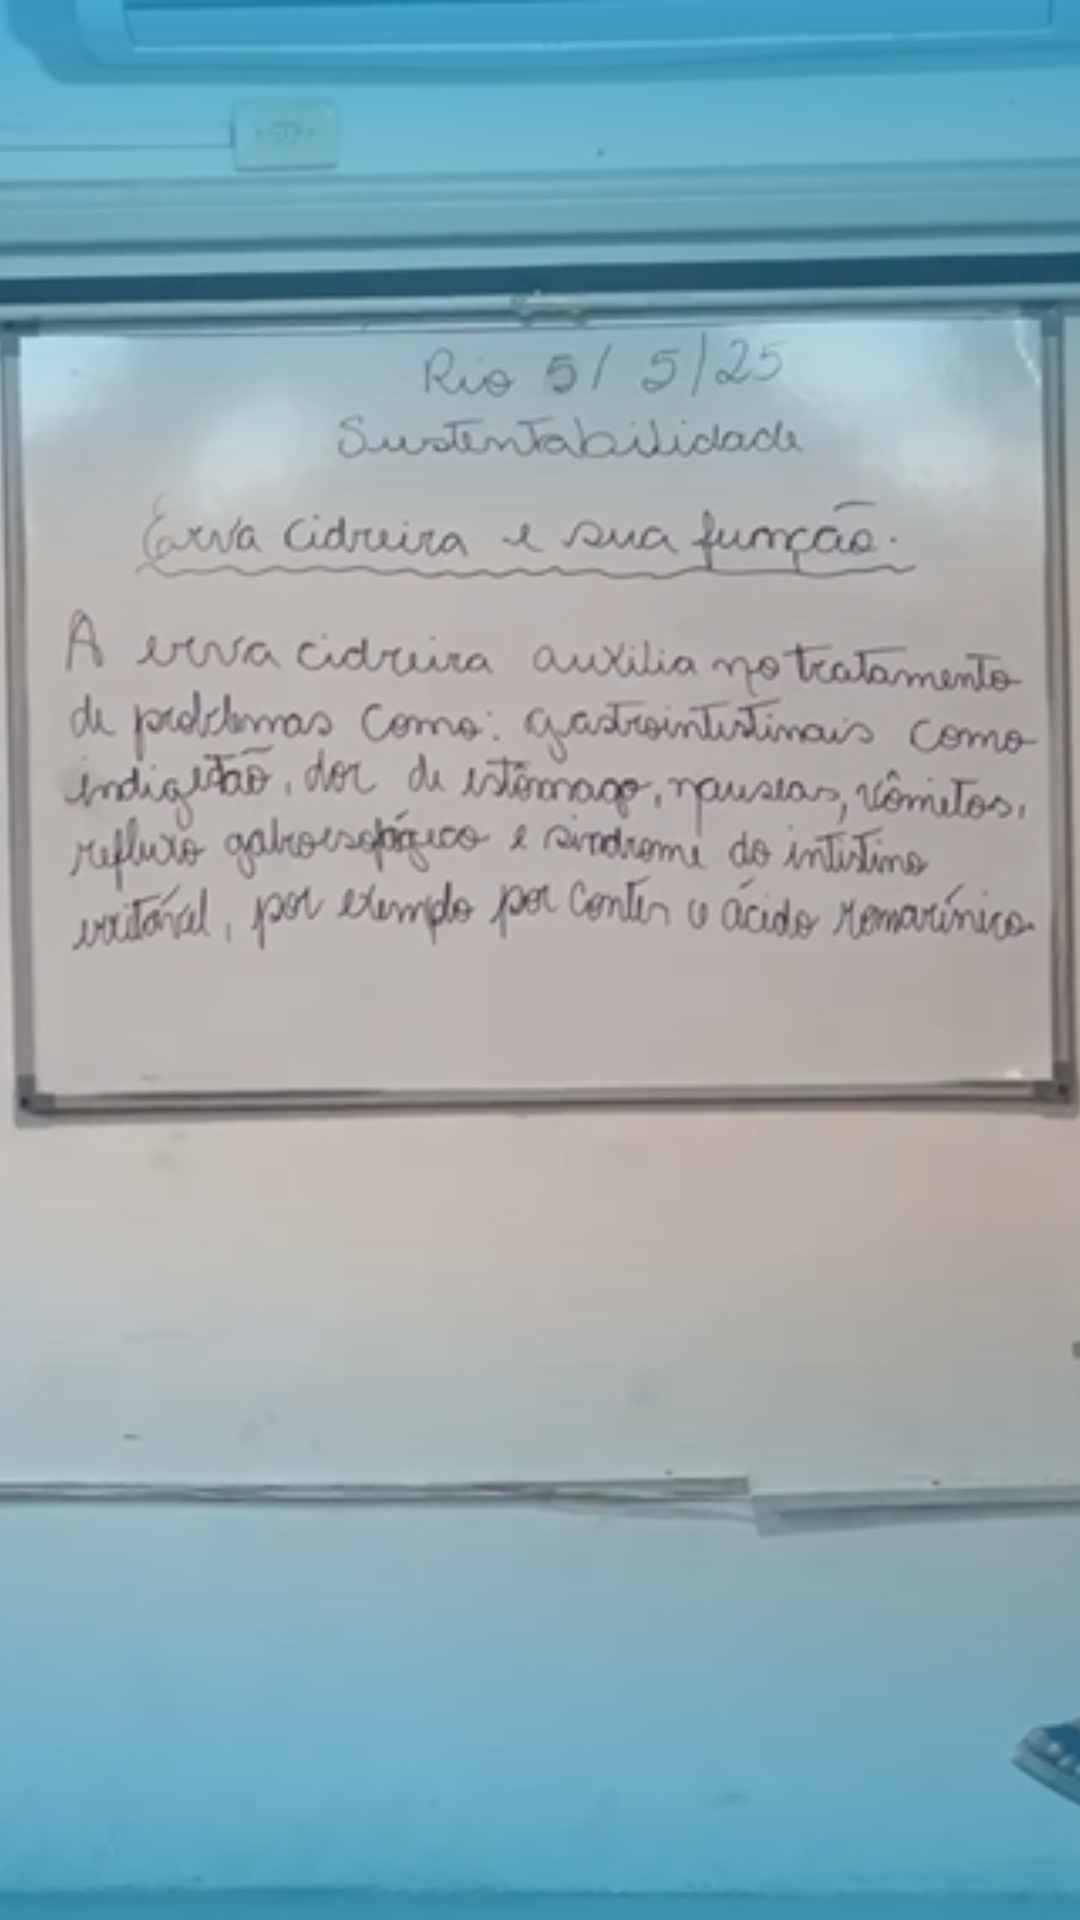 Rio 5/ 5/25
Sustentabilidade
Erva cidreira e sua função.
A erva cidreira auxilia no tratamento
de problemas como: gastrointestinais como
indigestão, dor de estômago, nauseas, vômitos,
refluxo e sindrome do intestino
irritável, por exemplo por conter o ácido